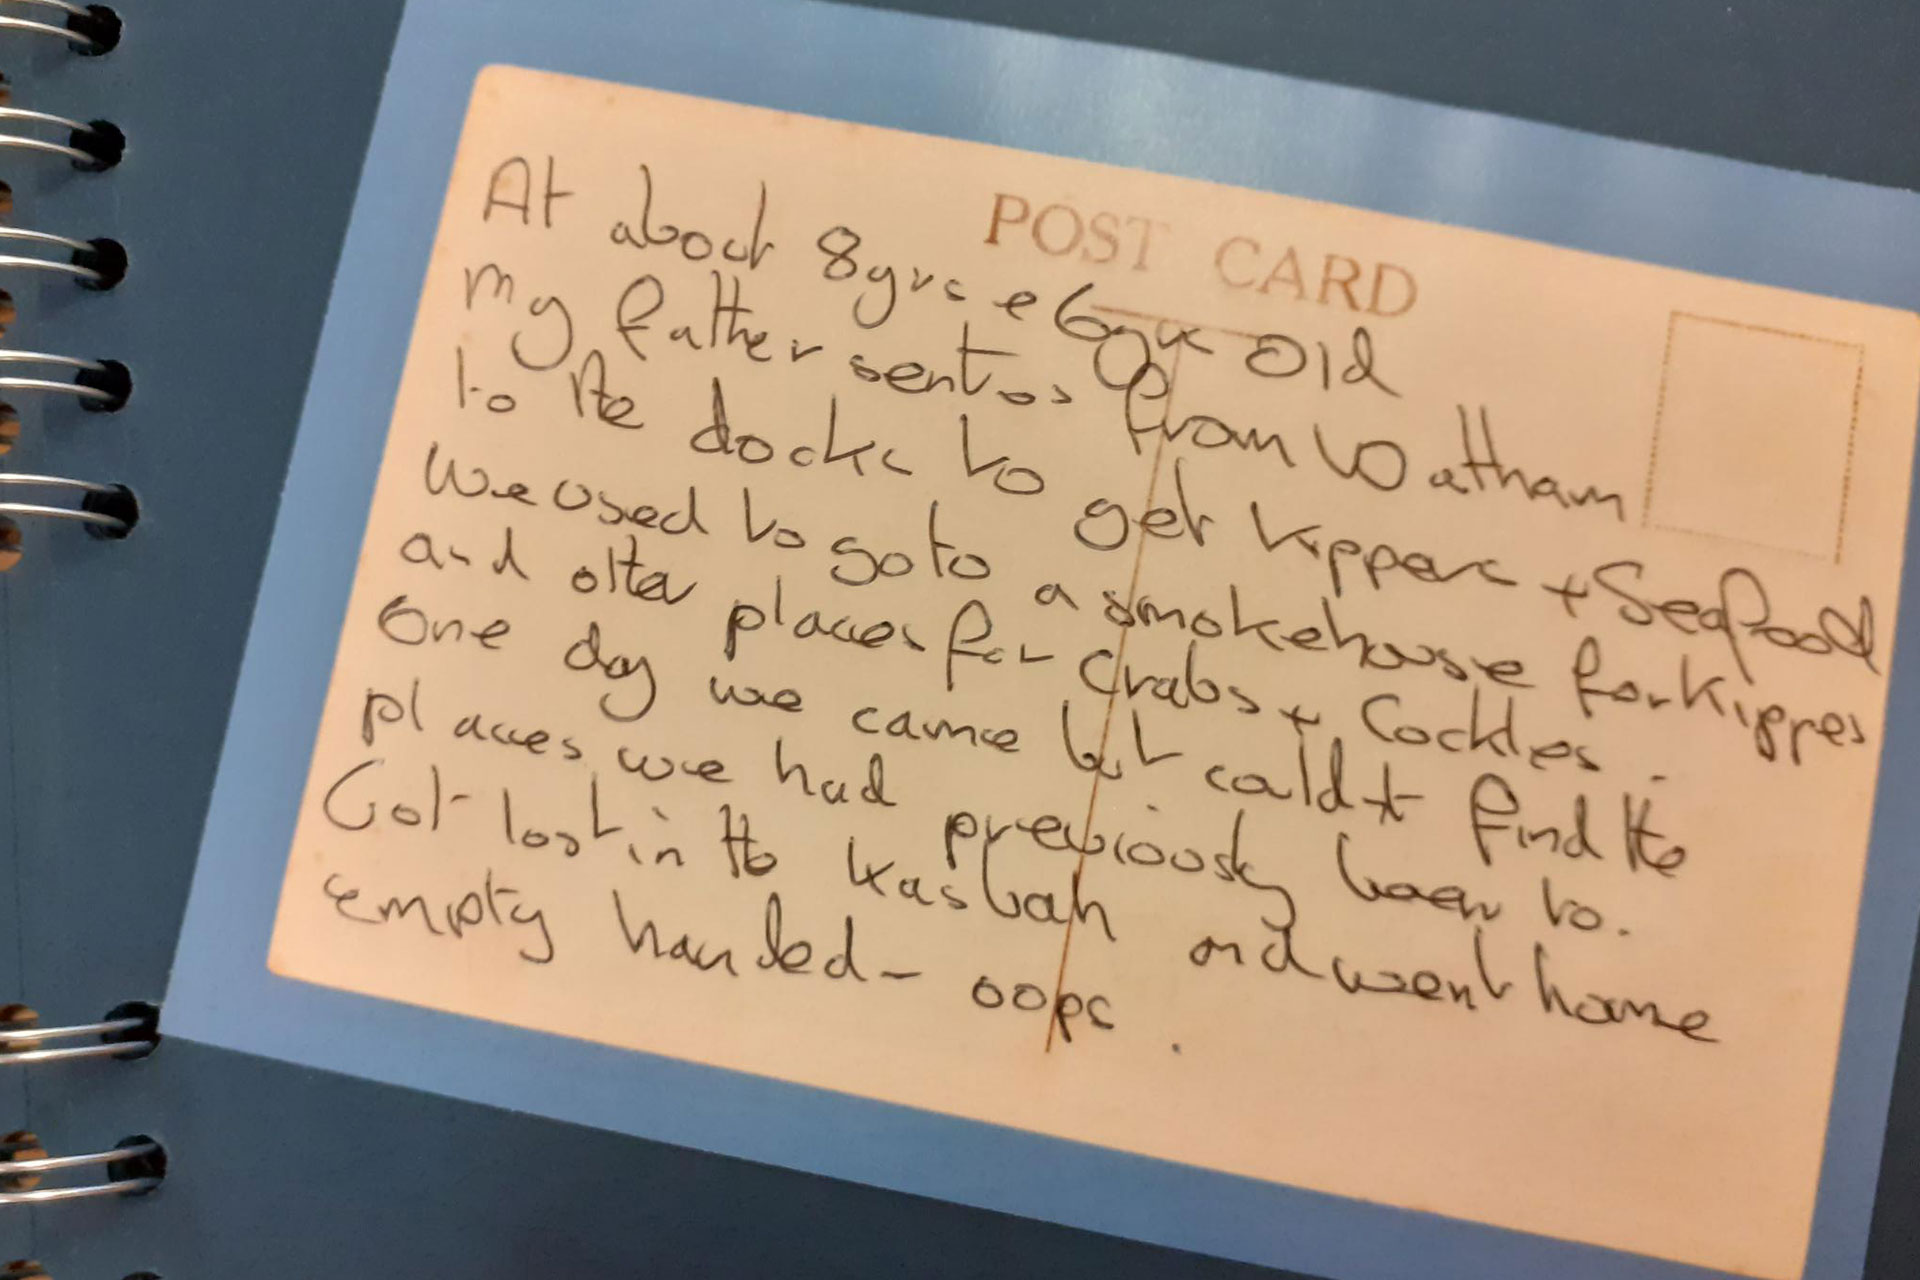 POST CARD
At about 8yrs e 6yr old
my father sent us from Waltham
to the docks to get kippers + Seafood
we used to go to a smokehouse for kippers
and other places for Crabs + Cockles.
One day we came but couldt find the
places we had previously been to.
Got lost in the kasbah and went home
empty handed - oops.